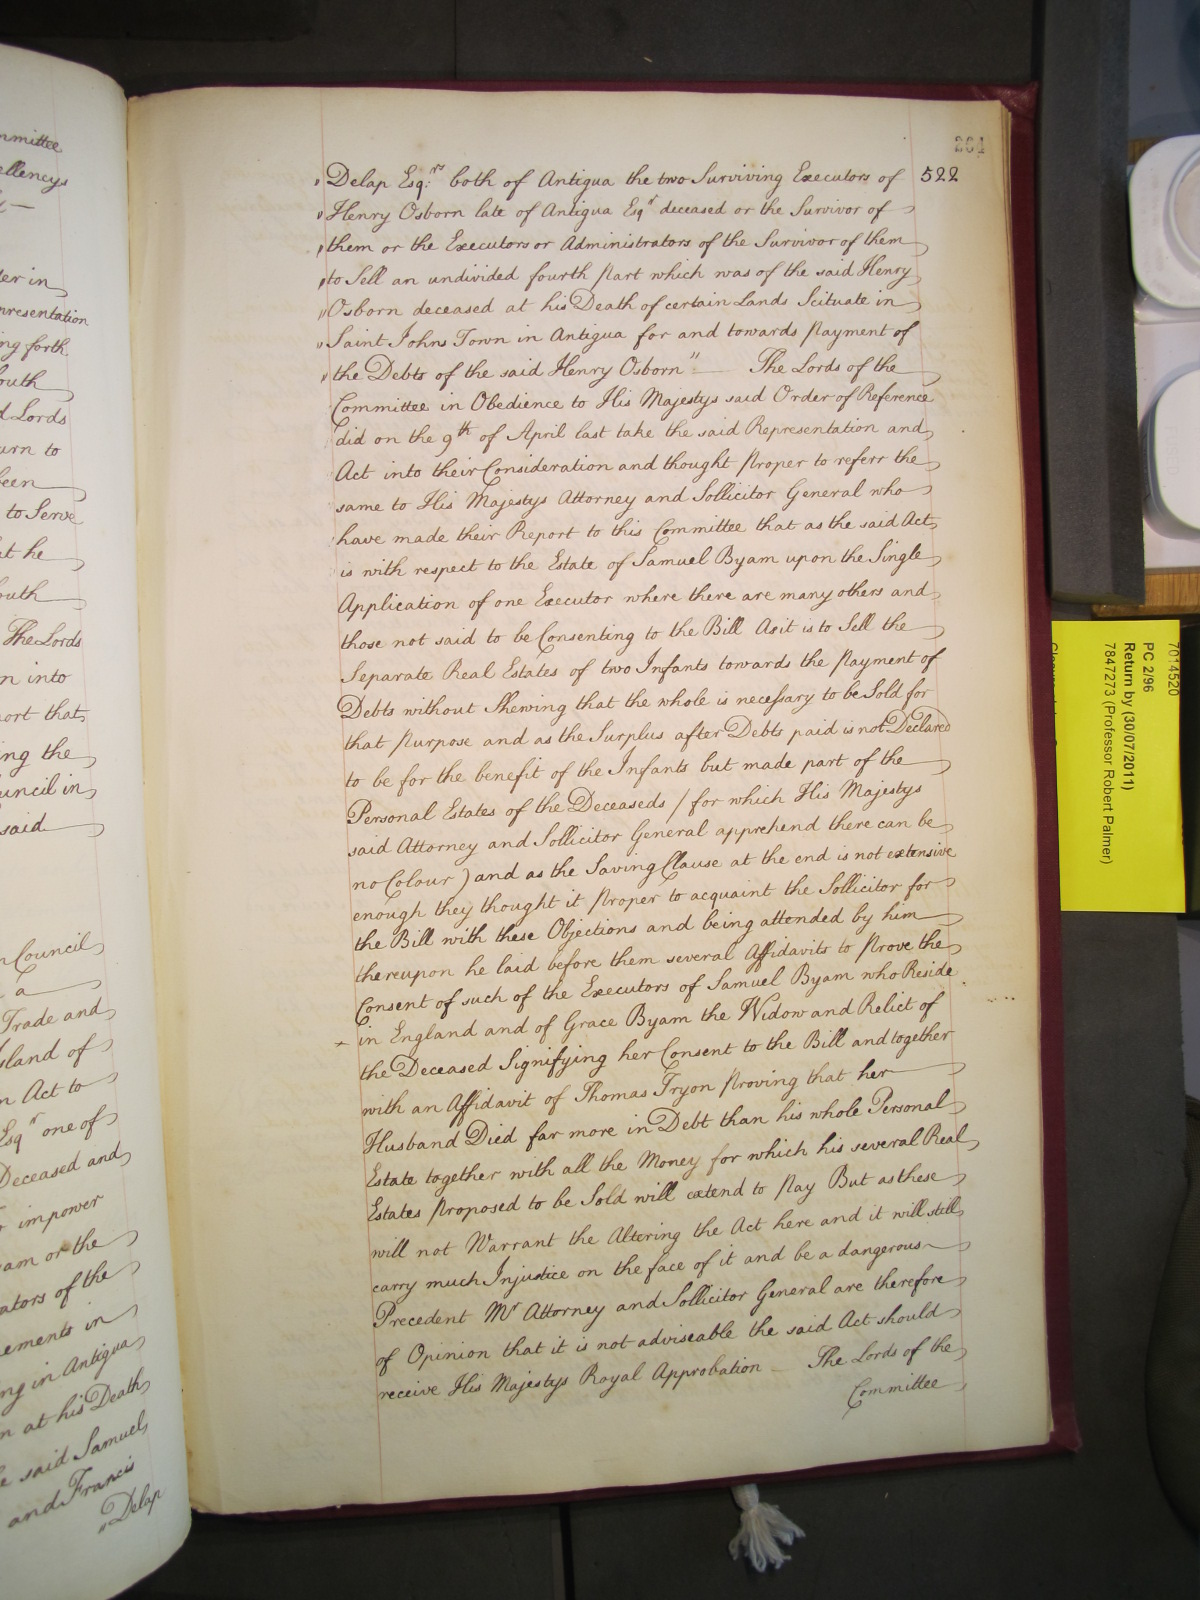 mmittee
ellencys
er in
presentation
ng forth
outh
d Lords
urn to
een
to Serve
at he
outh
The Lords
n into
port that
ing the
uncil in
said
n Council
a
Trade and
sland of
n Act to
Esqr one of
Deceased and
impower
am or the
ators of the
ements in
ng in Antigua
n at his Death
e said Samuel
and Francis
" Delap
264
522
" Delap Esq:rs both of Antigua the two Surviving Executors of
" Henry Osborn late of Antigua Esqr deceased or the Survivor of
" them or the Executors or Administrators of the Survivor of them
" to Sell an undivided fourth part which was of the said Henry
" Osborn deceased at his Death of certain Lands Scituate in
" Saint Johns Town in Antigua for and towards payment of
" the Debts of the said Henry Osborn" — The Lords of the
Committee in Obedience to His Majestys said Order of Reference
did on the 9th of April last take the said Representation and
Act into their Consideration and thought proper to referr the
same to His Majestys Attorney and Sollicitor General who
have made their Report to this Committee that as the said Act
is with respect to the Estate of Samuel Byam upon the Single
Application of one Executor where there are many others and
those not said to be Consenting to the Bill As it is to Sell the
Separate Real Estates of two Infants towards the payment of
Debts without Shewing that the whole is necessary to be Sold for
that purpose and as the Surplus after Debts paid is not Declared
to be for the benefit of the Infants but made part of the
Personal Estates of the Deceaseds / for which His Majestys
said Attorney and Sollicitor General apprehend there can be
no Colour ) and as the Saving Clause at the end is not extensive
enough they thought it proper to acquaint the Sollicitor for
the Bill with these Objections and being attended by him
thereupon he laid before them several Affidavits to prove the
Consent of such of the Executors of Samuel Byam who Reside
in England and of Grace Byam the Widow and Relict of
the Deceased Signifying her Consent to the Bill and together
with an Affidavit of Thomas Tryon proving that her
Husband Died far more in Debt than his whole Personal
Estate together with all the Money for which his several Real
Estates proposed to be Sold will extend to pay But as these
will not Warrant the Altering the Act here and it will still
carry much Injustice on the face of it and be a dangerous
Precedent Mr Attorney and Sollicitor General are therefore
of Opinion that it is not adviseable the said Act should
receive His Majestys Royal Approbation — The Lords of the
Committee
7014520
PC 2/96
Return by (30/07/2011)
7847273 (Professor Robert Palmer)